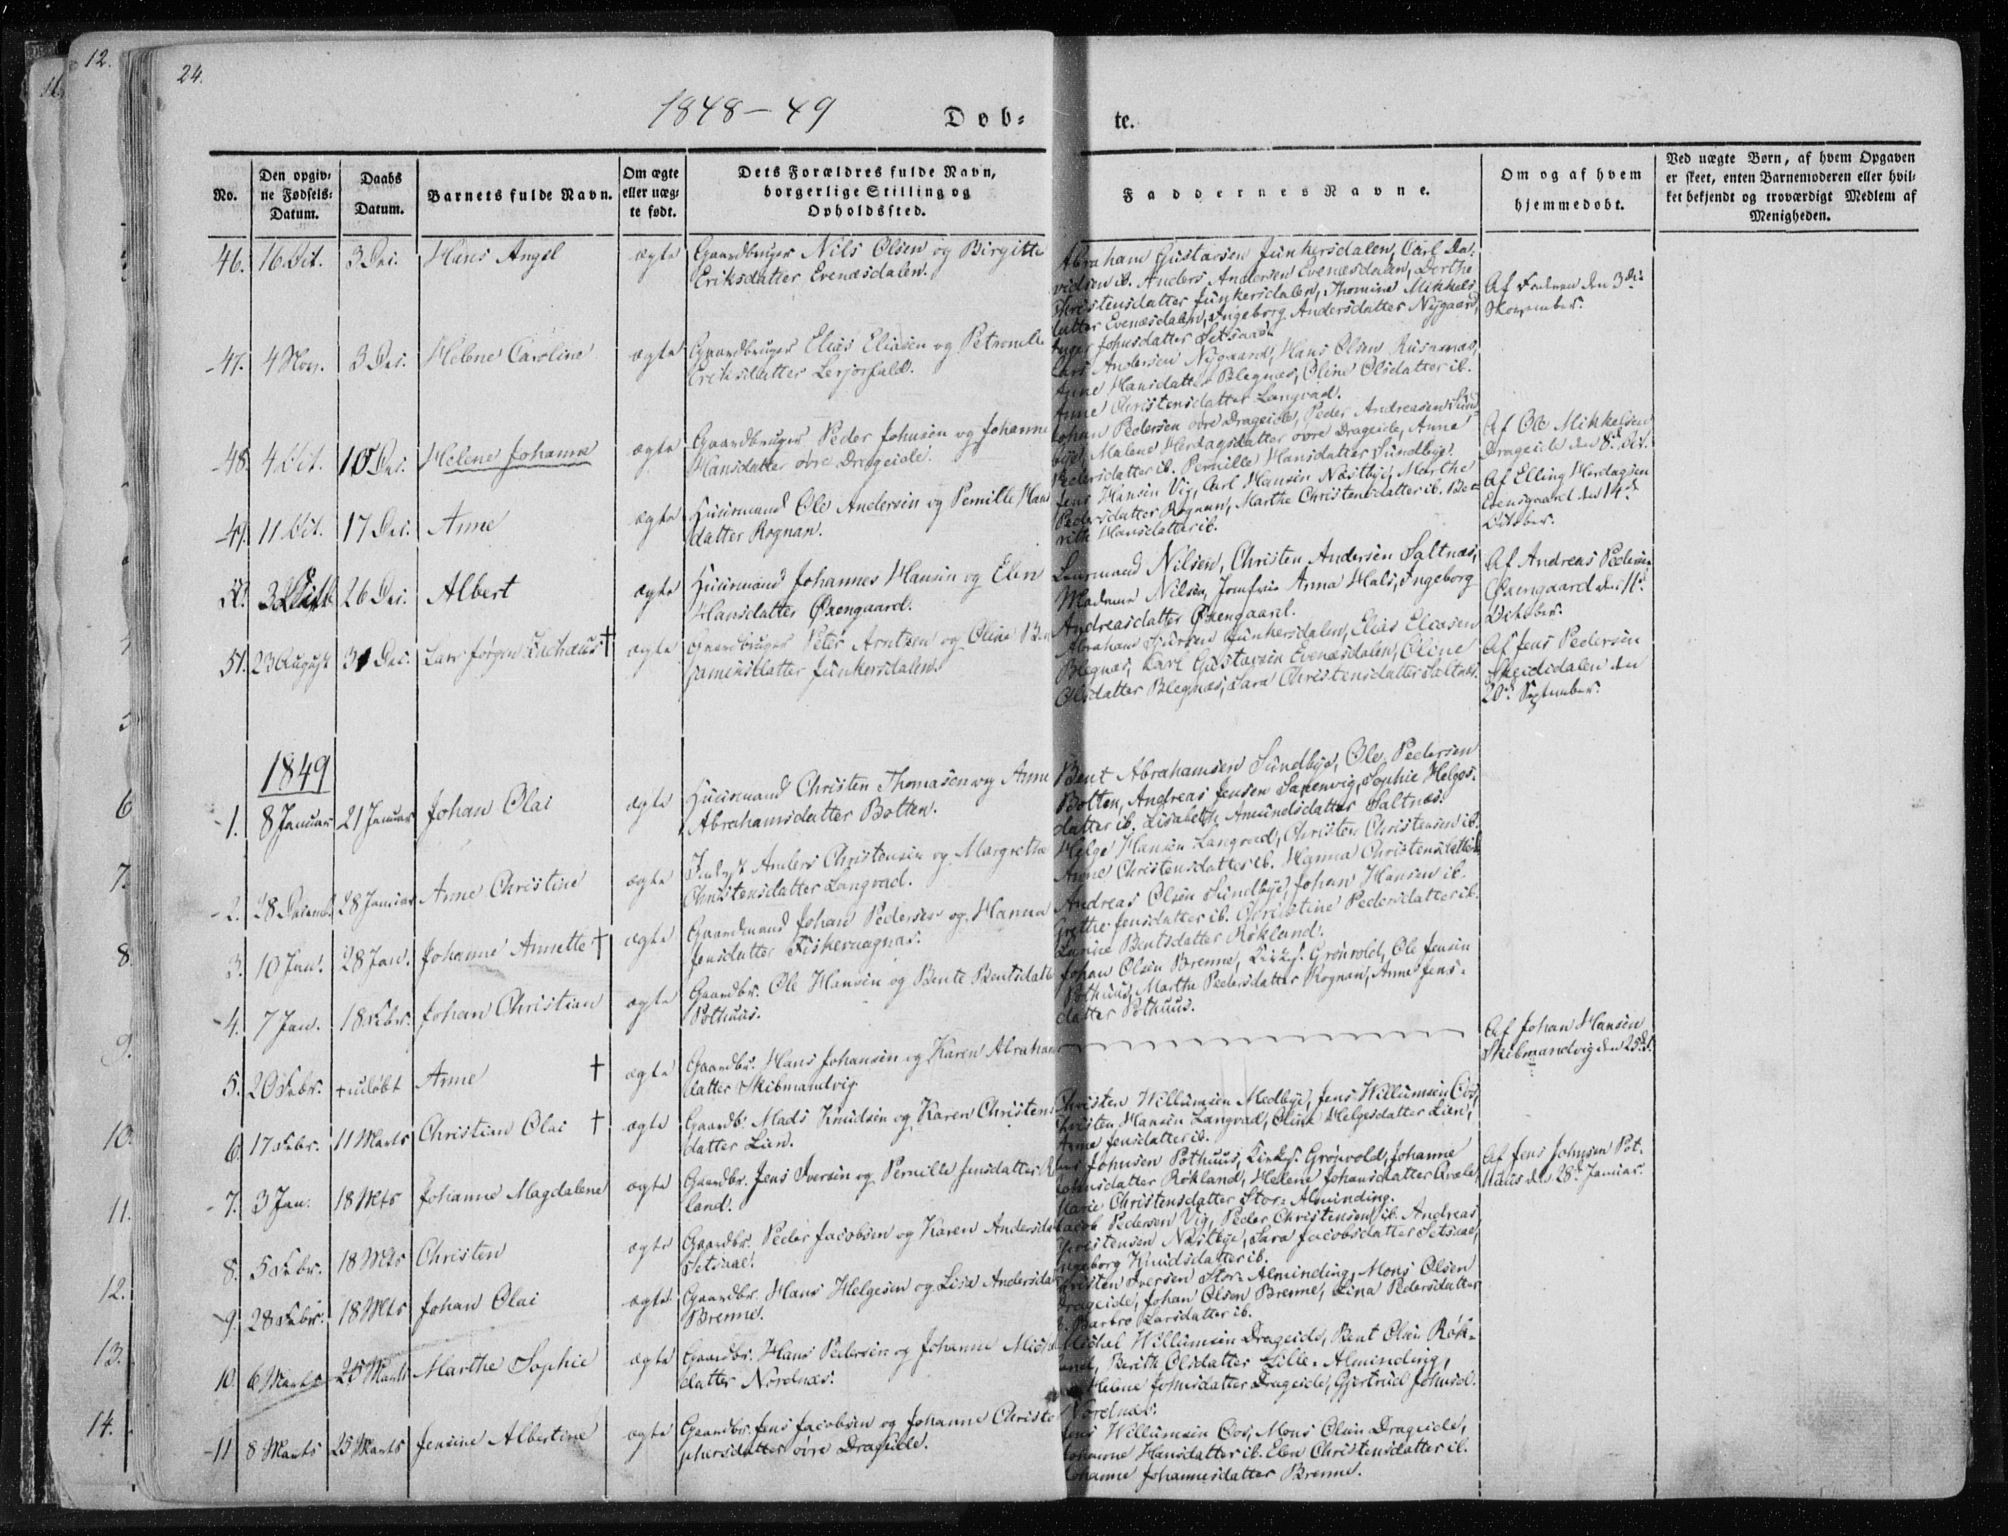 12.
24.
1848–49
Døb=
te.
No.
Den opgiv-
ne Fødsels-
Datum.
Daabs
Datum.
Barnets fulde Navn.
Om ægte
eller uæg-
te født.
Dets Forældres fulde Navn,
borgerlige Stilling og
Opholdssted.
Faddernes Navne.
Om og af hvem
hjemmedøbt.
Ved uægte Børn, af hvem Opgaven
er skeet, enten Barnemoderen eller hvil-
ket bekjendt og troværdigt Medlem af
Menigheden.
46. 16 Oct. 3 Dec. Hans Angel ægte Gaardbruger Nils Olsen og Birgitte
Eriksdatter Evenæsdalen.
Abraham Gustavsen Junkersdalen, Carl Da-
vidsen ib. Anders Andersen Evenæsdalen, Dorthe
Christensdatter Junkersdalen, Thomine Mikkels
datter Evenæsdalen, Ingeborg Andersdatter Nygaard,
Inger Johnsdatter Setsaae.
Af Faderen den 3die
November.
47. 4 Nov. 3 Dec. Helene Caroline ægte Gaardbruger Elias Eliasen og Petronelle
Eriksdatter Lerjorfald.
Lars Andersen Nygaard, Hans Olsen Rusaanæs,
Anne Hansdatter Blegnæs, Oline Olsdatter ib.
Anne Christensdatter Langvad.
48. 4 Oct. 10 Dec. Helene Johanna ægte Gaardbruger Peder Johnsen og Johanne
Hansdatter øvre Drageide.
Johan Pedersen øvre Drageide, Peder Andreasen Sund
bye, Malene Herdagsdatter øvre Drageide, Anne
Pedersdatter ib. Pernille Hansdatter Sundbye.
Af Ole Mikkelsen
Drageide den 8d. Oct.
49. 11 Oct. 17 Dec. Anne ægte Huusmand Ole Andersen og Pernille Hans
datter Rognan.
Jens Hansen Vig, Carl Hansen Næstbye, Marthe
Pedersdatter Rognan, Marthe Christensdatter ib. Be-
rith Hansdatter ib.
Af Elling Herdagsen
Evensgaard den 14d.
October.
50. 26 Dec. Albert ægte Huusmand Johannes Hansen og Elen
Hansdatter Øxengaard.
Leursmand Nilsen, Christen Andersen Saltnæs,
Madame Nilsen, Jomfrue Anna Hals, Ingeborg
Andreasdatter Øxengaard.
Af Andreas Pedersen
Øxengaard den 11d.
October.
51. 23 August 31 Dec. Lars Jørgen Zachæus † ægte Gaardbruger Peter Arntzen og Oline Ben
jaminsdatter Junkersdalen
Abraham Sjursen Junkersdalen, Elias Eliasen
Blegnæs, Karl Gustavsen Evenæsdalen, Oline
Olsdatter Blegnæs, Sara Christensdatter Saltnæs.
Af Jens Pedersen
Skeididalen den
20d. September.
1849
1. 8 Januar 21 Januar Johan Olai ægte Huusmand Christen Thomasen og Anne
Abrahamsdatter Botten.
Bent Abrahamsen Sundbye, Ole Pedersen
Botten, Andreas Jensen Saxenvig, Sophie Helges-
datter ib. Lisabeth Amundsdatter Saltnæs.
2. 28 Decemb. 28 Januar Anne Christine ægte Inderst Anders Christensen og Margrethe
Christensdatter Langvad.
Helge Hansen Langvad, Christen Christensen ib.
Anne Christensdatter ib. Hanna Christensdatter ib.
3. 10 Jan. 28 Jan. Johanne Annette † ægte Gaardmand Johan Pedersen og Hanna
Jensdatter Fiskervagnæs.
Andreas Olsen Sundbye, Johan Hansen ib.
Grethe Jensdatter ib. Christine Pedersdatter ib.
Lovise Bentsdatter Røkland.
4. 7 Jan. 18 Febr. Johan Christian ægte Gaardbr. Ole Hansen og Bente Bentsdatter
Pothuus.
Johan Olsen Brenne, Kirks. Grønvold, Ole Jensen
Pothuus, Marthe Pedersdatter Rognan, Anne Jens-
datter Pothuus.
5. 20 Febr. + udøbt Anne † ægte Gaardbr. Hans Johansen og Karen Abraham
datter Skibmandvig
Af Johan Hansen
Skibmandvig den 25d.
6. 17 Febr. 11 Marts Christian Olai † ægte Gaardb. Mads Knudsen og Karen Christens
datter Lien.
Christen Willumsen Medbye, Jens Willumsen Oos,
Christen Hansen Langvad, Oline Helgesdatter Lien,
Anne Jensdatter ib.
7. 3 Jan. 18 Mts Johanne Magdalene ægte Gaardbr. Jens Iversen og Pernille Jensdatter Røk
land.
Jens Johnsen Pothuus, Kirks. Grønvold, Johanne
Johnsdatter Røkland, Helene Johansdatter Qvale,
Marie Christensdatter Stor-Alminding.
Af Jens Johnsen Pot-
huus den 28d. Januar.
8. 5 Febr. 18 Mts Christen ægte Gaardbr. Peder Jacobsen og Karen Andersdat
Setsaae.
Jacob Pedersen Vig, Peder Christensen ib. Andreas
Christensen Næstbye, Sara Jacobsdatter Setsaae,
Ingeborg Knudsdatter ib.
9. 28 Febr. 18 Mts Johan Olai ægte Gaardbr. Hans Helgesen og Lisa Andersdat
Brenne.
Christen Iversen Stor-Alminding, Mons Olsen
Drageide, Johan Olsen Brenne, Lina Pedersdatter
ib. Barbro Larsdatter ib.
10. 6 Marts 25 Marts Marthe Sophie ægte Gaardbr. Hans Pedersen og Johanne Michal
datter Nordnæs.
Michal Willumsen Drageide, Bent Olsen Røk-
land, Berith Olsdatter Lille-Alminding,
Helene Johnsdatter Drageide, Gjertrud Johnsd.
Nordnæs.
11 8 Marts 25 Marts Jensine Albertine ægte Gaardbr. Jens Jacobsen og Johanne Christo
phersdatter øvre Drageide.
Jens Willumsen Oos, Mons Olsen Drageide,
Johanne Hansdatter ib. Elen Christensdatter ib.
Johanne Johannesdatter Brenne.
5
6
7.
8.
9.
10.
11.
12.
13.
14.